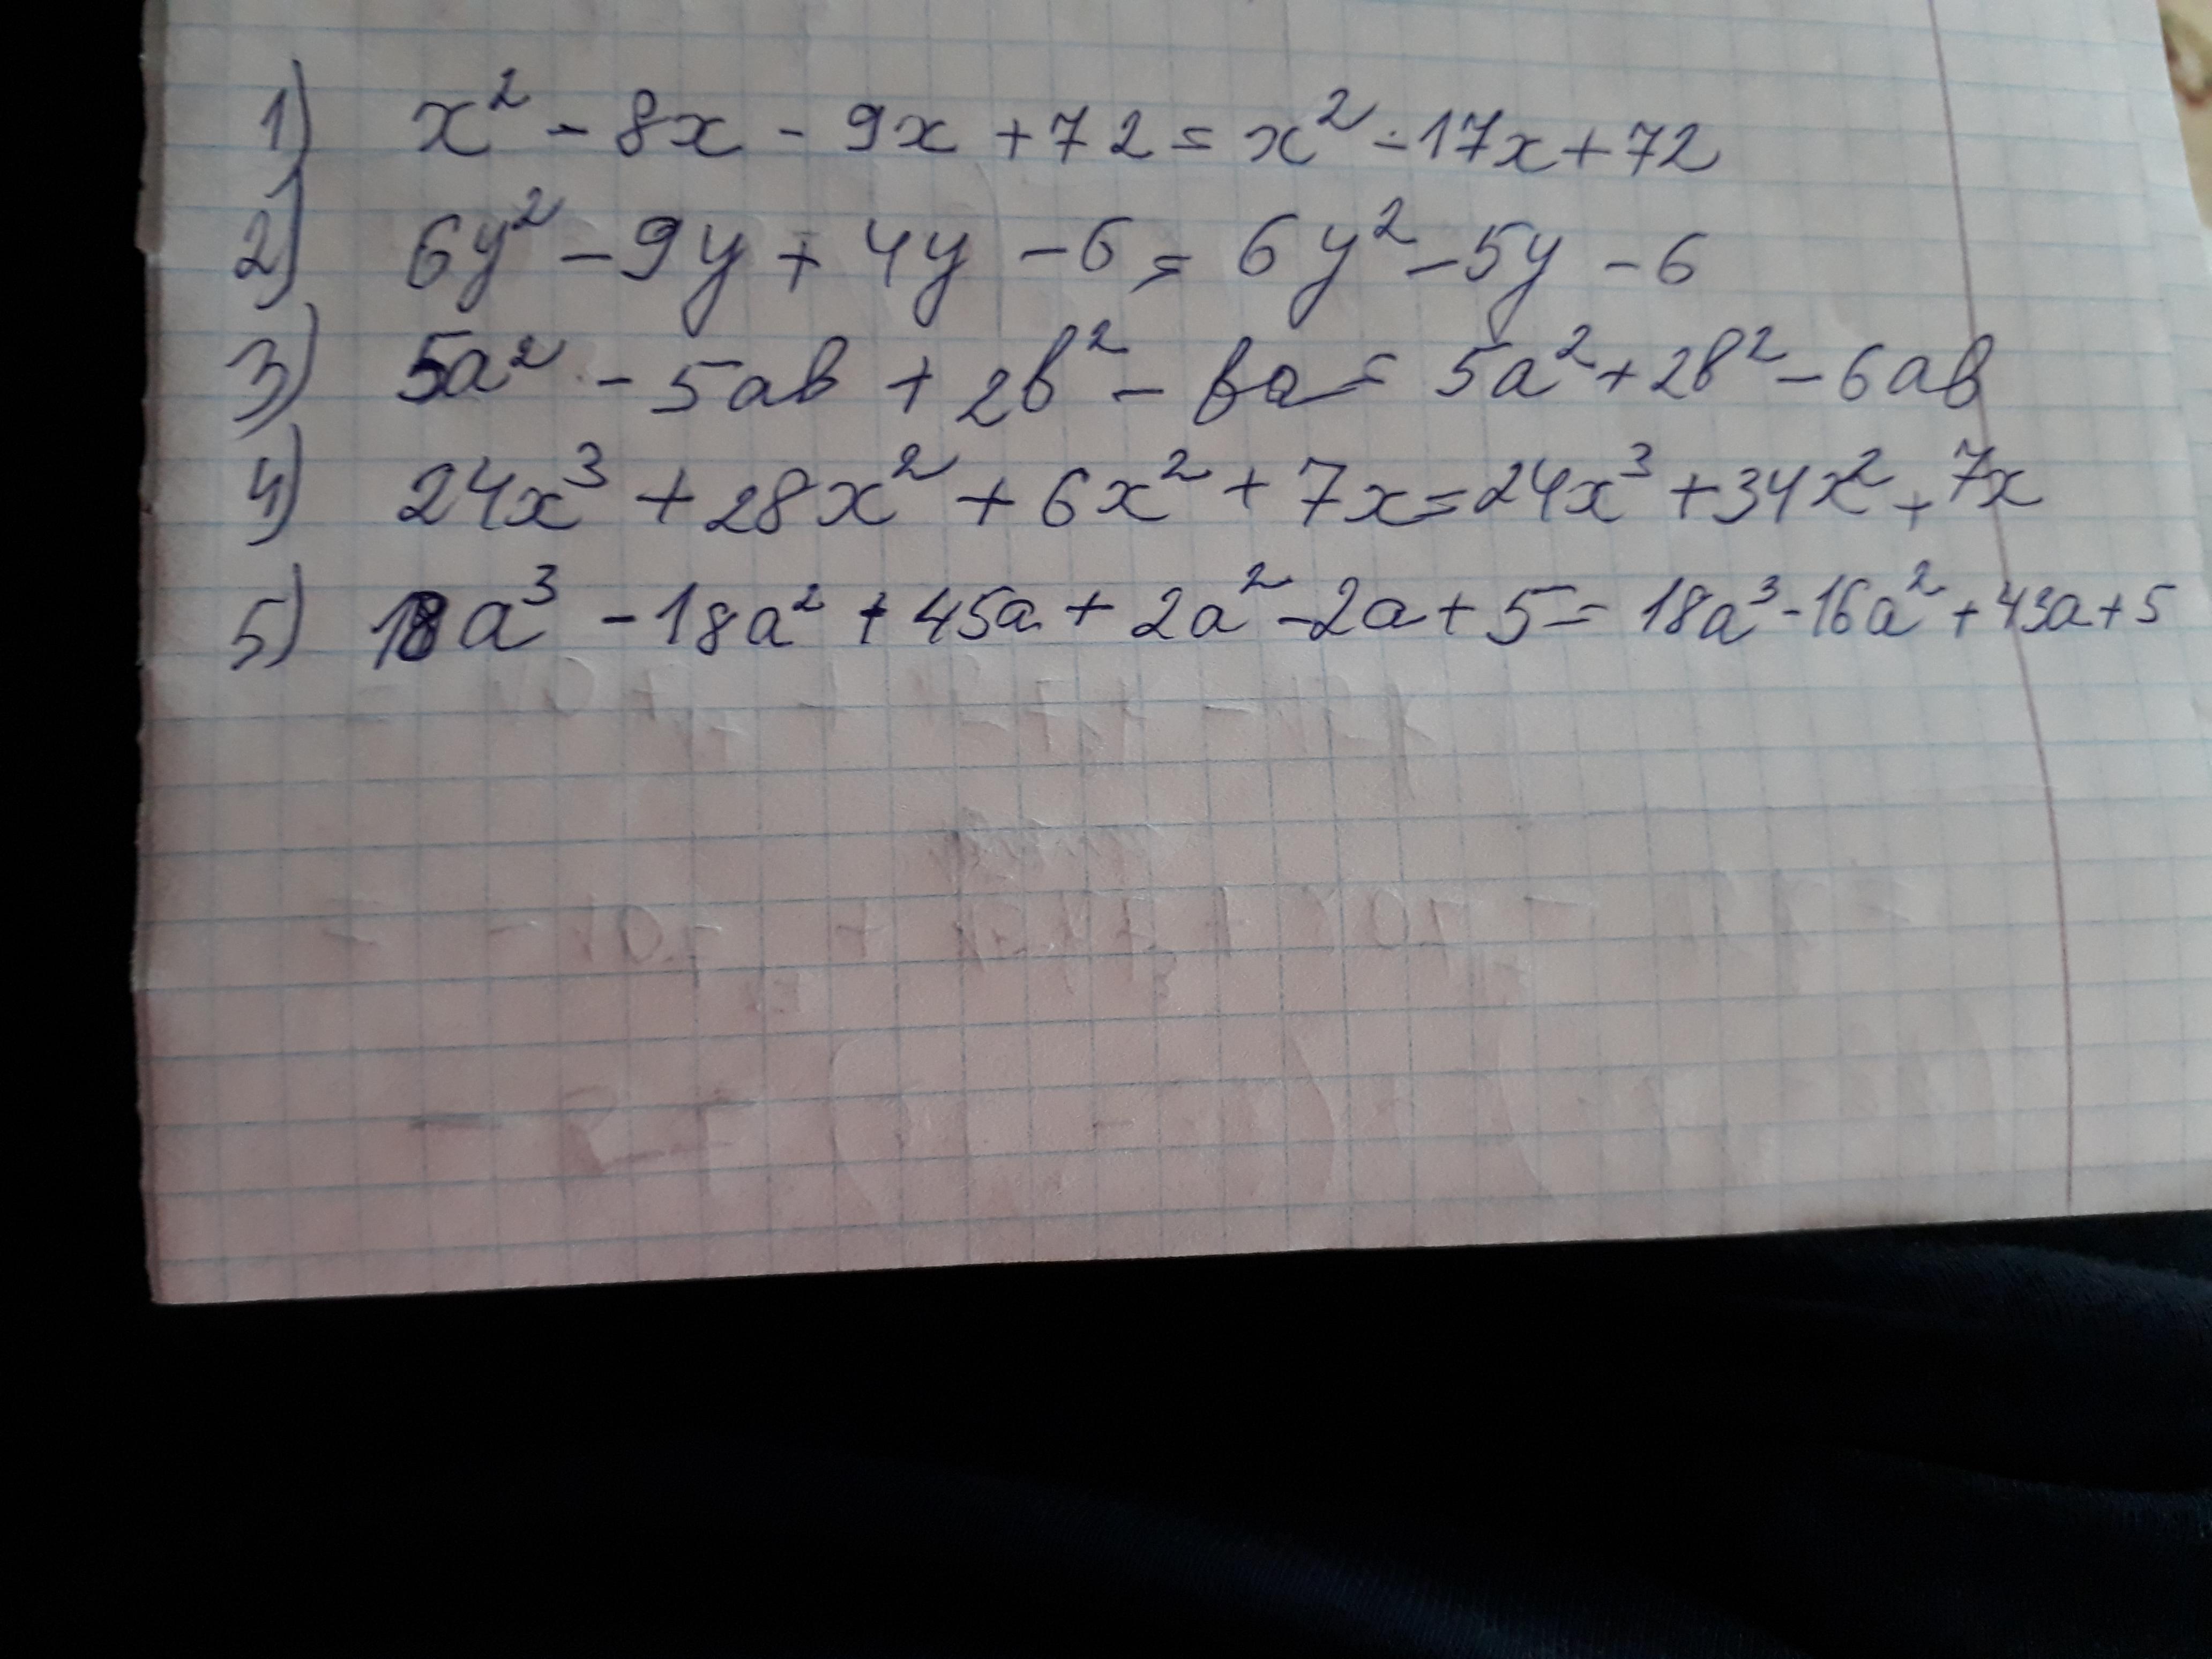 1) x² - 8x - 9x + 72 = x² - 17x + 72
2) 6y² - 9y + 4y - 6 = 6y² - 5y - 6
3) 5a² - 5ab + 2b² - ba = 5a² + 2b² - 6ab
4) 24x³ + 28x² + 6x² + 7x = 24x³ + 34x² + 7x
5) 18a³ - 18a² + 45a + 2a² - 2a + 5 = 18a³ - 16a² + 43a + 5